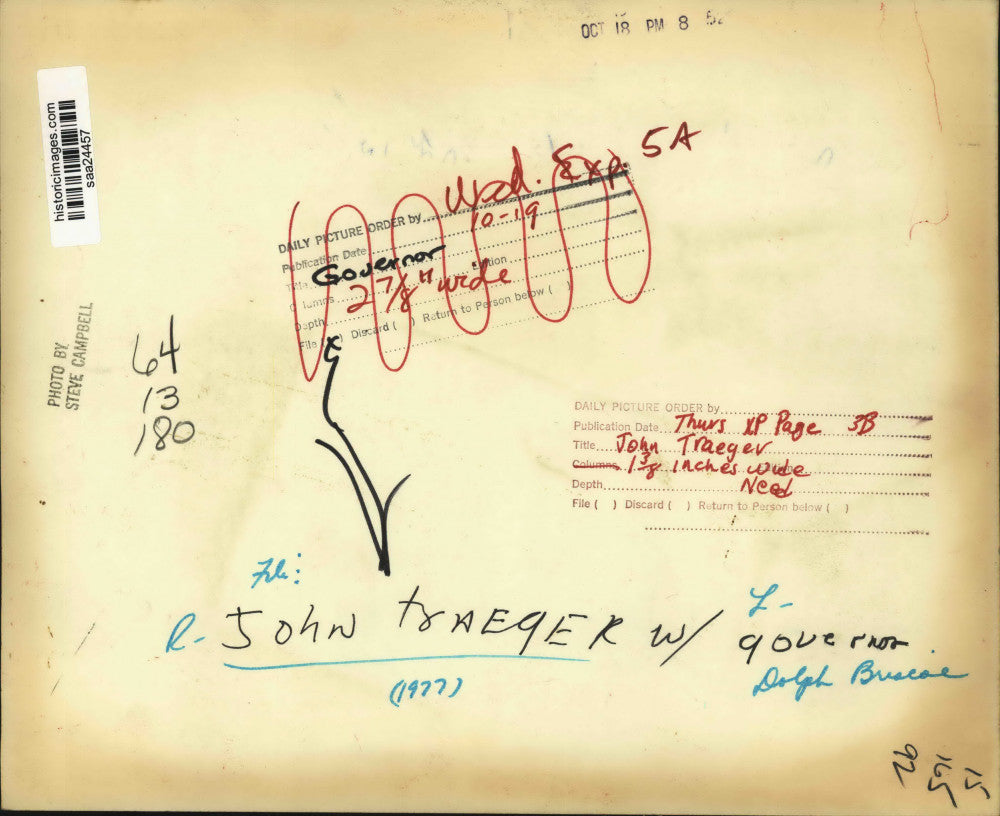 OCT 18 PM 8 52
historicimages.com
saa24457
Wed. Exp. 5A
DAILY PICTURE ORDER by
10-19
Publication Date
Governor
Title
Edition
2 7/8" wide
Columns
Depth
File ( ) Discard ( ) Return to Person below ( )
PHOTO BY
STEVE CAMPBELL
64
13
180
DAILY PICTURE ORDER by
Publication Date Thurs XP Page 3B
Title John Traeger
Columns 1 3/8 inches wide
Depth Need
File ( ) Discard ( ) Return to Person below ( )
File:
R- JOHN TRAEGER w/ L- governor
(1977) Dolph Briscoe
26
165
15